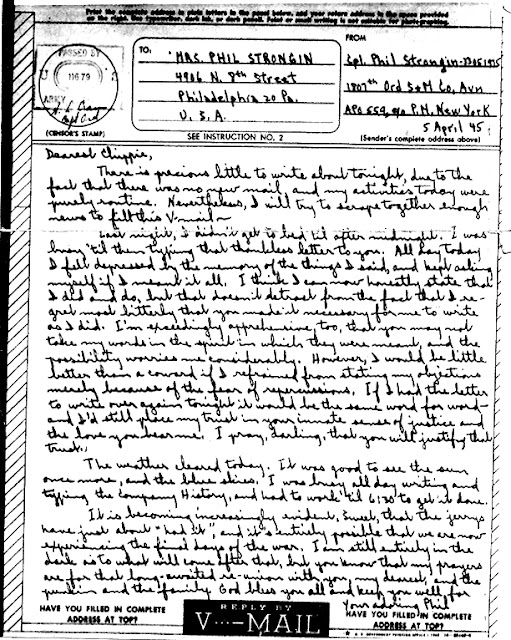 Print the complete address in plain letters in the panel below, and your return address in the space provided
on the right. Use typewriter, dark ink, or dark pencil. Faint or small writing is not suitable for photographing.
PASSED BY
U
11679
ARMY
(CENSOR'S STAMP)
TO:
MRS. PHIL STRONGIN
4906 N. 8th Street
Philadelphia 20 Pa.
U. S. A.
SEE INSTRUCTION NO. 2
FROM
Cpl. Phil Strongin
1807th Ord S&M Co., Avn
APO 559, c/o P.M. New York
5 April 45.
(Sender's complete address above)
Dearest Chippie,
There is precious little to write about tonight, due to the
fact that there was no new mail, and my activities today were
purely routine. Nevertheless, I will try to scrape together enough
news to fill this V-mail—
Last night, I didn't get to bed 'til after midnight. I was
busy 'til then typing that thankless letter to you. All day today
I felt depressed by the memory of the things I said, and kept asking
myself if I meant it all. I think I can now honestly state that
I did and do, but that doesn't detract from the fact that I re-
gret most bitterly that you made it necessary for me to write
as I did. I'm exceedingly apprehensive, too, that you may not
take my words in the spirit in which they were meant, and the
possibility worries me considerably. However, I would be little
better than a coward if I refrained from stating my objections
merely because of the fear of repercussions. If I had the letter
to write over again tonight it would be the same word for word—
and I'd still place my trust in your innate sense of justice and
the love you bear me. I pray, darling, that you will justify that
trust.
The weather cleared today. It was good to see the sun
once more, and the blue skies. I was busy all day writing and
typing the Company History, and had to work 'til 6:30 to get it done.
It is becoming increasingly evident, Sweet, that the jerrys
have just about "had it", and it's entirely possible that we are now
experiencing the final days of the war. I am still entirely in the
dark as to what will come after that, but you know that my prayers
are for that long-awaited re-union with you, my dearest, and the
punkin and the family. God bless you all and keep you well, for
Your adoring Phil
HAVE YOU FILLED IN COMPLETE
ADDRESS AT TOP?
REPLY BY
V···-MAIL
HAVE YOU FILLED IN COMPLETE
ADDRESS AT TOP?